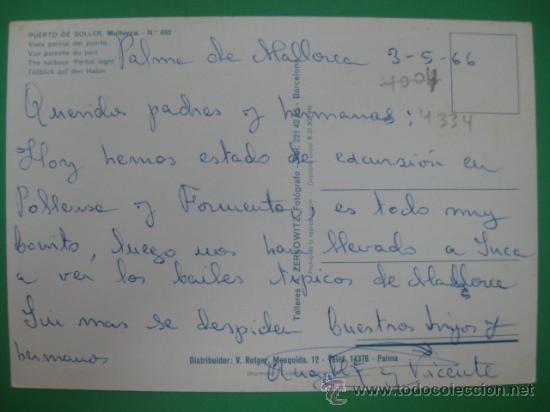 PUERTO DE SOLLER. Mallorca. - N.º 692
Vista parcial del puerto
Vue partielle du port
The harbour. Partial sight
Teilblick auf den Hafen
Palma de Mallorca 3-5-66
4004
Queridos padres y hermanas: 4334
Hoy hemos estado de excursión en
Pollensa y Formentor, es todo muy
bonito, luego nos han llevado a Inca
a ver los bailes tipicos de Mallorca
Sin mas se despiden buestros hijos y
hermanos
Ana Mª y Vicente
Talleres A. ZERKOWITZ, Fotógrafo - Barcelona
Distribuidor: V. Rotger, Mesquida, 12 - Teléf. 14376 - Palma
todocoleccion.net